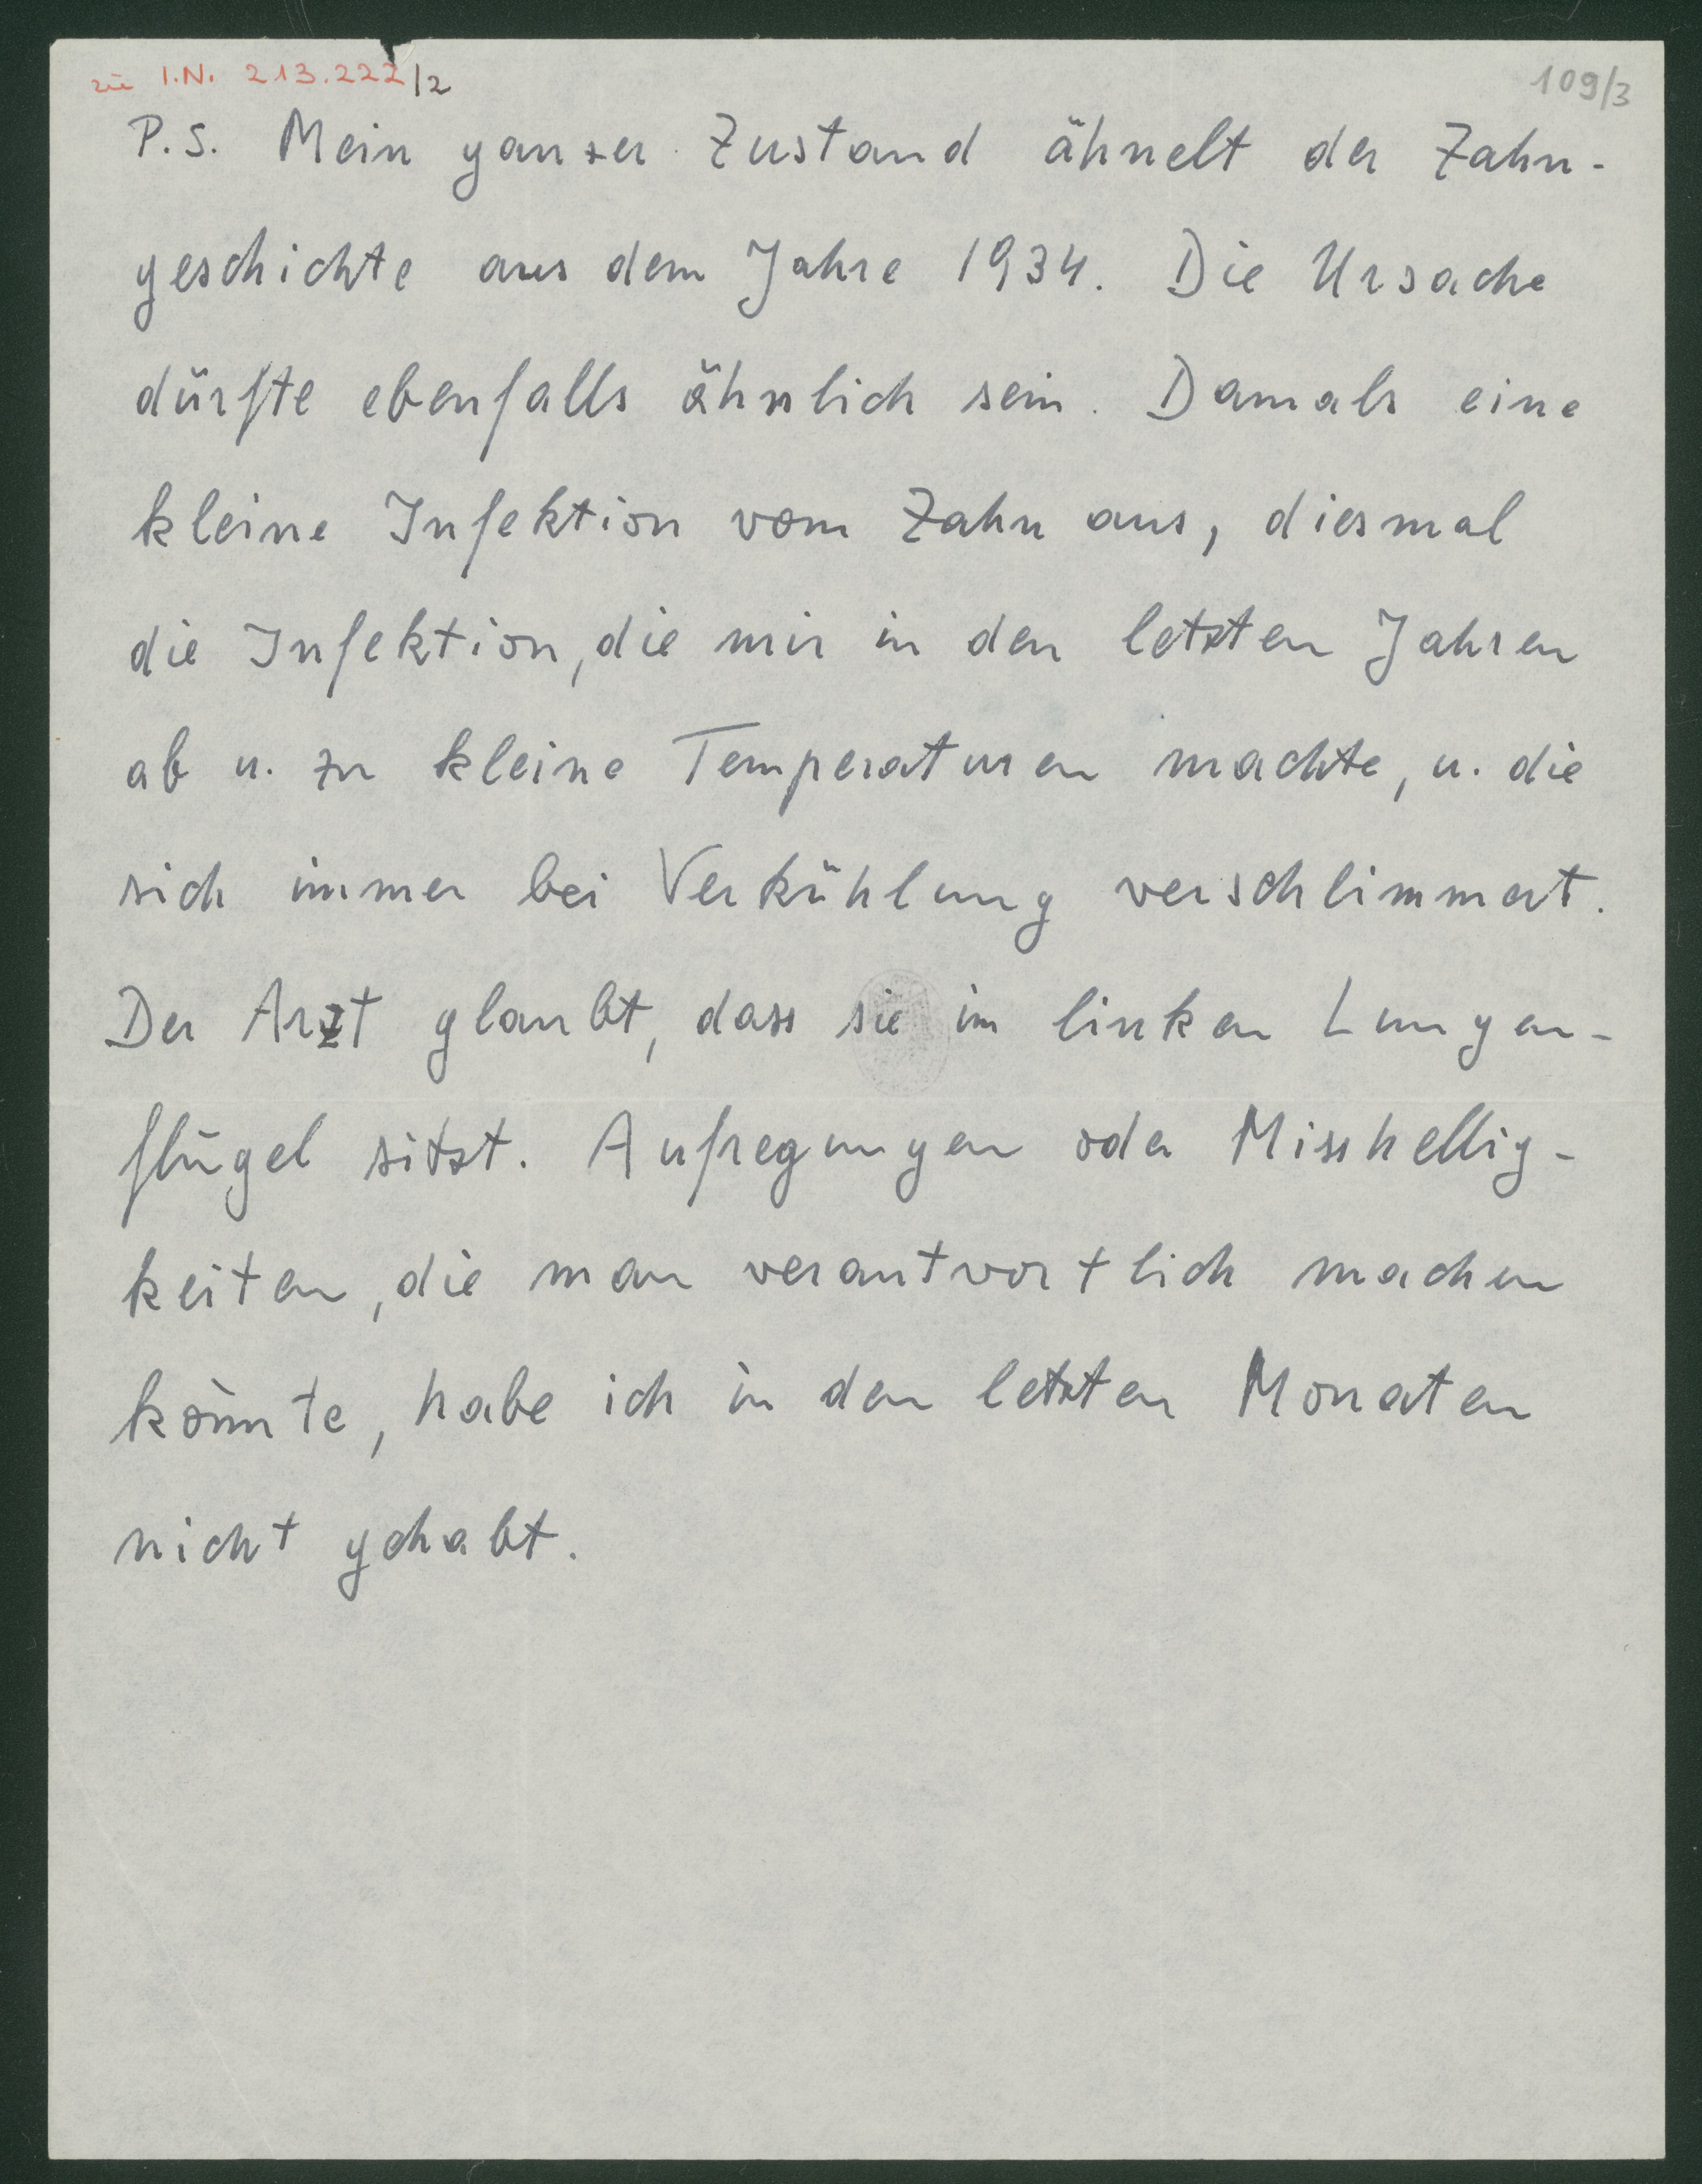 zu I.N. 213.222/2
109/3
P.S. Mein ganzer Zustand ähnelt der Zahn-
geschichte aus dem Jahre 1934. Die Ursache
dürfte ebenfalls ähnlich sein. Damals eine
kleine Infektion vom Zahn aus, diesmal
die Infektion, die mir in den letzten Jahren
ab u. zu kleine Temperaturen machte, u. die
sich immer bei Verkühlung verschlimmert.
Der Arzt glaubt, dass sie im linken Lungen-
flügel sitzt. Aufregungen oder Misshellig-
keiten, die man verantwortlich machen
könnte, habe ich in den letzten Monaten
nicht gehabt.